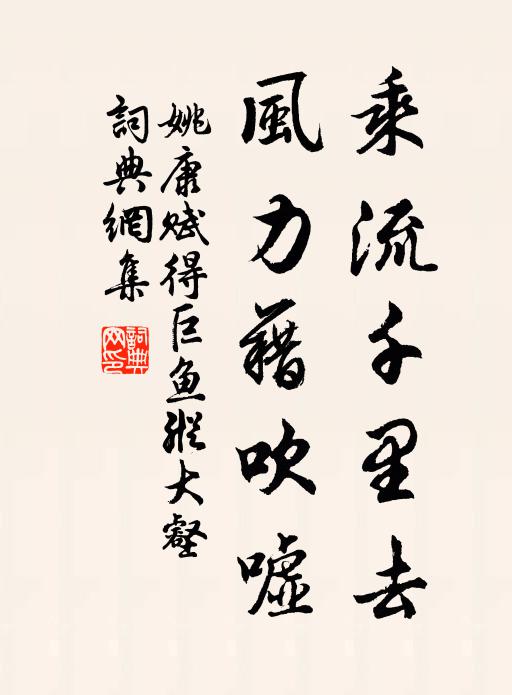 乘流千里去
風力藉吹噓
姚康賦得巨魚縱大壑
詞典網集
詞典網印